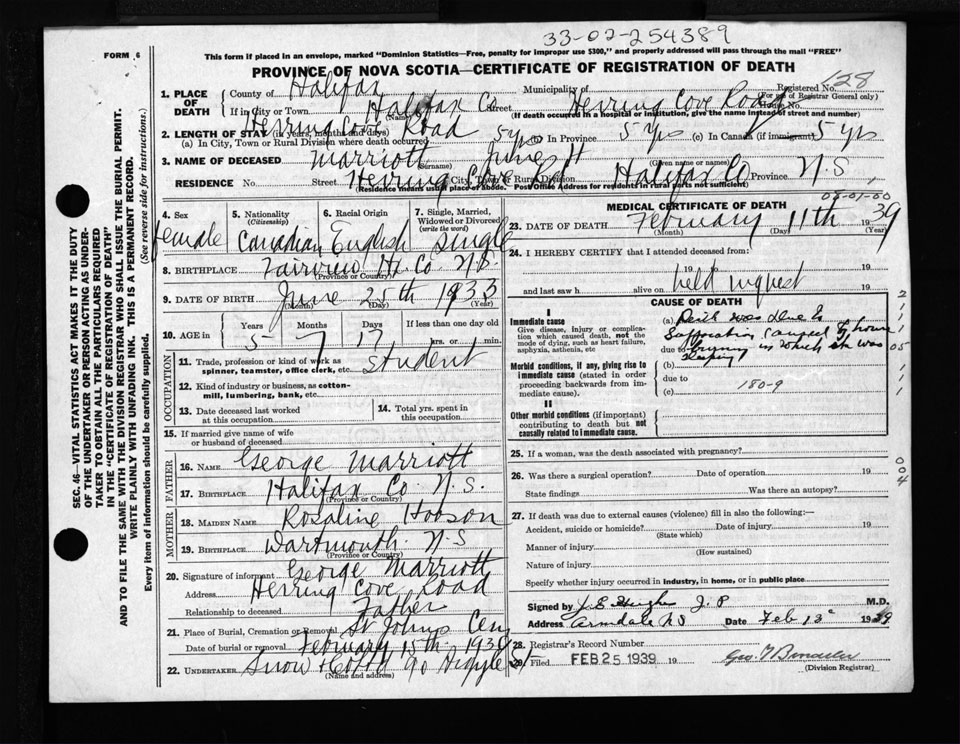 33-02-254389
FORM 6
This form if placed in an envelope, marked "Dominion Statistics—Free, penalty for improper use $300," and properly addressed will pass through the mail "FREE"
PROVINCE OF NOVA SCOTIA—CERTIFICATE OF REGISTRATION OF DEATH
Registered No. 128
(For use of Registrar General only)
1. PLACE OF DEATH
County of Halifax
Municipality of
If in City or Town Halifax Co. Street Herring Cove Road House No.
(Name)
(If death occurred in a hospital or institution, give the name instead of street and number)
Herring Cove Road
2. LENGTH OF STAY (in years, months and days)
(a) In City, Town or Rural Division where death occurred 5 yrs (b) In Province 5 yrs (c) In Canada (if immigrant) 5 yrs
3. NAME OF DECEASED Marriott June H
(Surname) (Given name or names)
RESIDENCE No. Street Herring Cove Rd City, Town or Rural Division Halifax Co Province N.S.
(Residence means usual place of abode. Post Office Address for residents in rural parts not sufficient)
4. Sex
female
5. Nationality
(Citizenship)
Canadian
6. Racial Origin
English
7. Single, Married, Widowed or Divorced
(write the word)
single
8. BIRTHPLACE Fairview Hx. Co. N.S.
(Province or Country)
9. DATE OF BIRTH June 25th 1933
(Month) (Day) (Year)
10. AGE in
Years Months Days If less than one day old
5 7 17 hrs. or min.
OCCUPATION
11. Trade, profession or kind of work as spinner, teamster, office clerk, etc. Student
12. Kind of industry or business, as cotton-mill, lumbering, bank, etc.
13. Date deceased last worked at this occupation
14. Total yrs. spent in this occupation
15. If married give name of wife or husband of deceased
FATHER
16. NAME George Marriott
17. BIRTHPLACE Halifax Co. N.S.
(Province or Country)
MOTHER
18. MAIDEN NAME Rosaline Hobson
19. BIRTHPLACE Dartmouth N.S
(Province or Country)
20. Signature of informant George Marriott
Address Herring Cove Road
Relationship to deceased Father
21. Place of Burial, Cremation or Removal St Johns Cem
Date of burial or removal February 15th 1939
22. UNDERTAKER Snow & Co Ltd 90 Argyle St
(Name and address)
MEDICAL CERTIFICATE OF DEATH
23. DATE OF DEATH February 11th 1939
(Month) (Day) (Year)
24. I HEREBY CERTIFY that I attended deceased from:
19 to 19
held inquest
and last saw h alive on 19
CAUSE OF DEATH
I
Immediate cause
Give disease, injury or complication which caused death, not the mode of dying, such as heart failure, asphyxia, asthenia, etc
(a) Death was due to
Suffocation caused by house
due to burning in which she was
sleeping
(b)
Morbid conditions, if any, giving rise to immediate cause (stated in order proceeding backwards from immediate cause).
due to
180-9
(c)
II
Other morbid conditions (if important) contributing to death but not causally related to immediate cause.
25. If a woman, was the death associated with pregnancy?
26. Was there a surgical operation? Date of operation 19
State findings Was there an autopsy?
27. If death was due to external causes (violence) fill in also the following:—
Accident, suicide or homicide? Date of injury 19
(State which)
Manner of injury
(How sustained)
Nature of injury
Specify whether injury occurred in industry, in home, or in public place
Signed by J.P. M.D.
Address Armdale NS Date Feb 13 1939
28. Registrar's Record Number
29. Filed FEB 25 1939 19
(Division Registrar)
SEC. 46—VITAL STATISTICS ACT MAKES IT THE DUTY
OF THE UNDERTAKER OR PERSON ACTING AS UNDER-
TAKER TO OBTAIN ALL THE PARTICULARS REQUIRED
IN THE "CERTIFICATE OF REGISTRATION OF DEATH"
AND TO FILE THE SAME WITH THE DIVISION REGISTRAR WHO SHALL ISSUE THE BURIAL PERMIT.
WRITE PLAINLY WITH UNFADING INK. THIS IS A PERMANENT RECORD.
Every item of information should be carefully supplied. (See reverse side for instructions.)